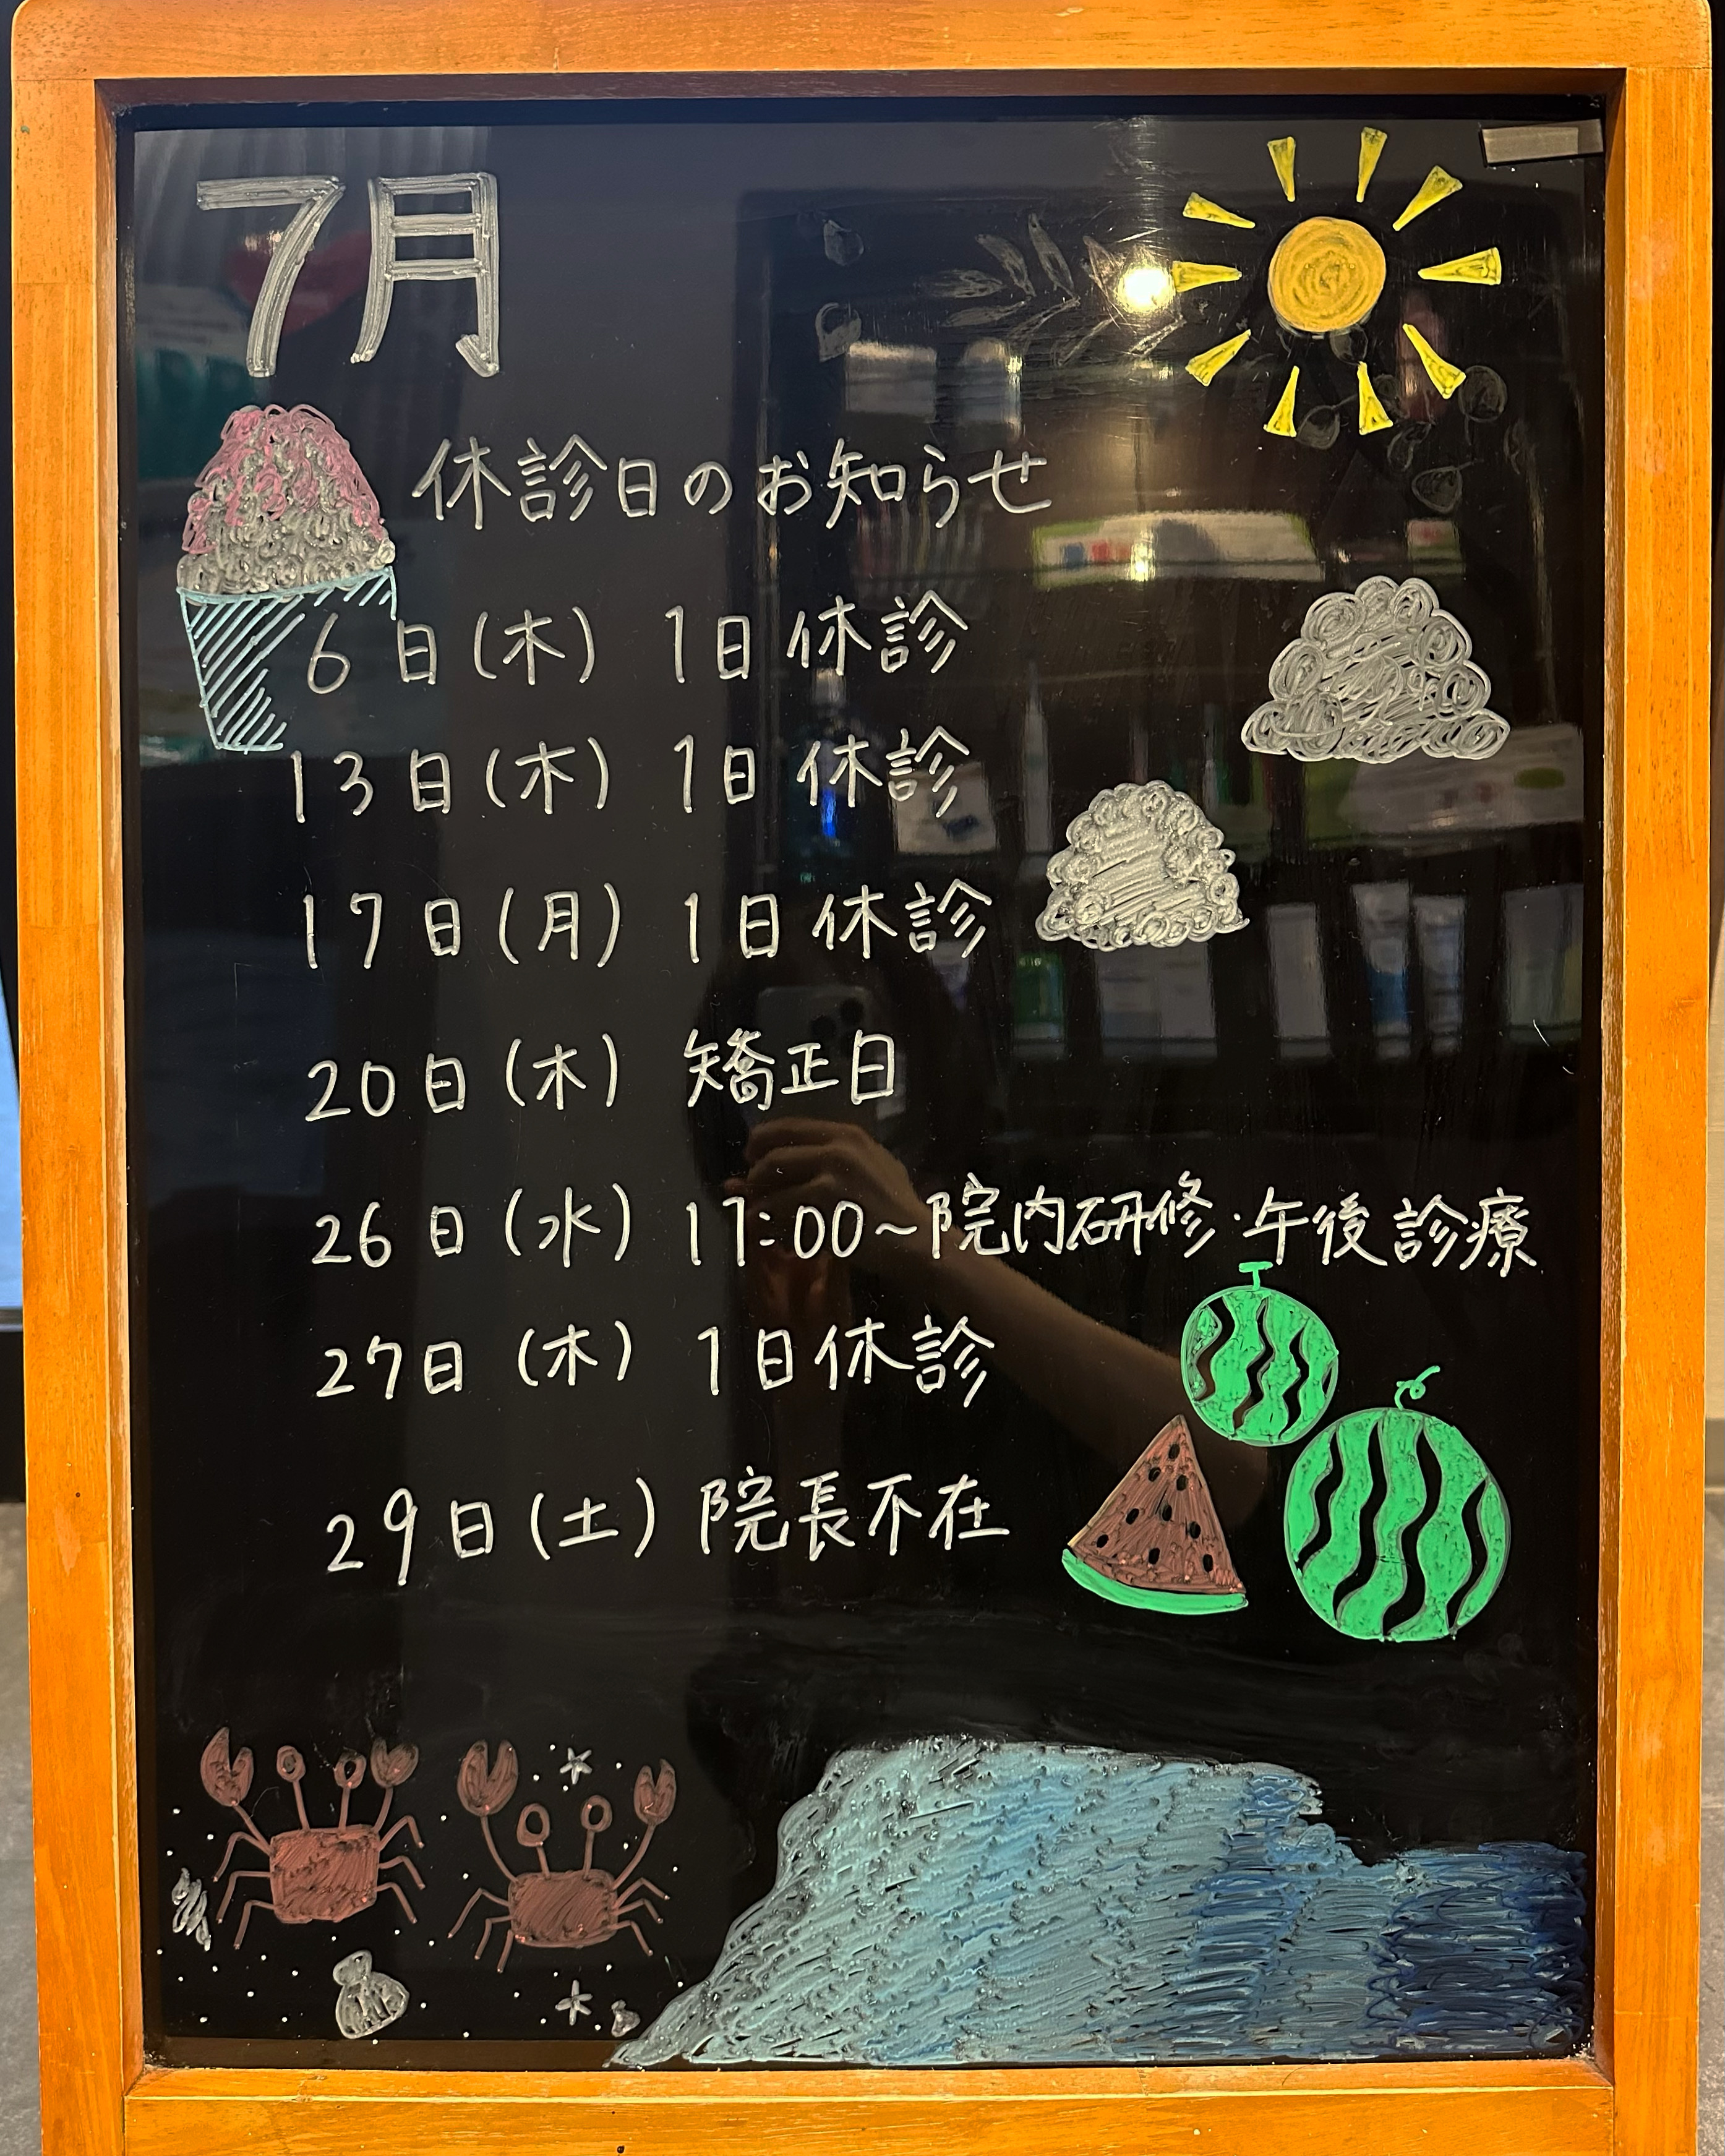 7月
休診日のお知らせ
6日(木) 1日休診
13日(木) 1日休診
17日(月) 1日休診
20日(木) 矯正日
26日(水) 17:00~院内研修・午後診療
27日(木) 1日休診
29日(土) 院長不在